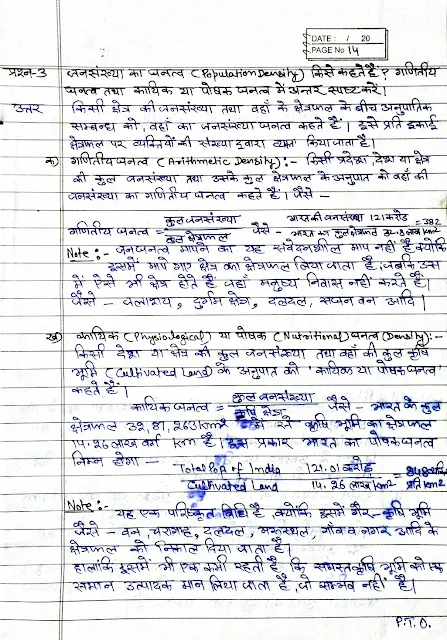 DATE: / 20
PAGE No 14
प्रश्न-3 जनसंख्या का घनत्व (Population Density) किसे कहते हैं? गणितीय
घनत्व तथा कायिक या पोषक घनत्व में अन्तर स्पष्ट करें।
उत्तर किसी क्षेत्र की जनसंख्या तथा वहाँ के क्षेत्रफल के बीच अनुपातिक
सम्बन्ध को, वहाँ का जनसंख्या घनत्व कहते हैं। इसे प्रति इकाई
क्षेत्रफल पर व्यक्तियों की संख्या द्वारा व्यक्त किया जाता है।
क) गणितीय घनत्व (Arithmetic Density):- किसी प्रदेश, देश या क्षेत्र
की कुल जनसंख्या तथा उसके कुल क्षेत्रफल के अनुपात को वहाँ की
जनसंख्या का गणितीय घनत्व कहते हैं। जैसे -
कुल जनसंख्या भारत की जनसंख्या 121 करोड़
गणितीय घनत्व = जैसे - = 382
कुल क्षेत्रफल भारत का कुल क्षेत्रफल 32.8 लाख km2
Note:- जनघनत्व मापने का यह संवेदनशील माप नहीं है क्योंकि
इसमें मापे गए क्षेत्र का क्षेत्रफल लिया जाता है, जबकि उस
में ऐसे भी क्षेत्र होते हैं जहाँ मनुष्य निवास नहीं करते हैं।
जैसे - जलाशय, दुर्गम क्षेत्र, दलदल, सघन वन आदि।
ख) कायिक (Physiological) या पोषक (Nutritional) घनत्व (Density):-
किसी देश या क्षेत्र की कुल जनसंख्या तथा वहाँ की कुल कृषि
भूमि (Cultivated Land) के अनुपात को 'कायिक या पोषक घनत्व'
कहते हैं।
कुल जनसंख्या
कायिक घनत्व = जैसे - भारत के कुल
कृषि क्षेत्र
क्षेत्रफल 32,87,263 km2 में कृषि भूमि का क्षेत्रफल
14.26 लाख वर्ग km है। इस प्रकार भारत का पोषक घनत्व
निम्न होगा -
Total Pop of India 121.01 करोड़
= 848 व्यक्ति
Cultivated Land 14.26 लाख km2 प्रति km2
Note:-
यह एक परिष्कृत विधि है, क्योंकि इसमें गैर-कृषि भूमि
जैसे - वन, चरागाह, दलदल, मरुस्थल, गाँव व नगर आदि के
क्षेत्रफल को निकाल दिया जाता है।
हालाँकि इसमें भी एक कमी रहती है कि समस्त कृषि भूमि को एक
समान उत्पादक मान लिया जाता है, जो सम्भव नहीं है।
P.T.O.